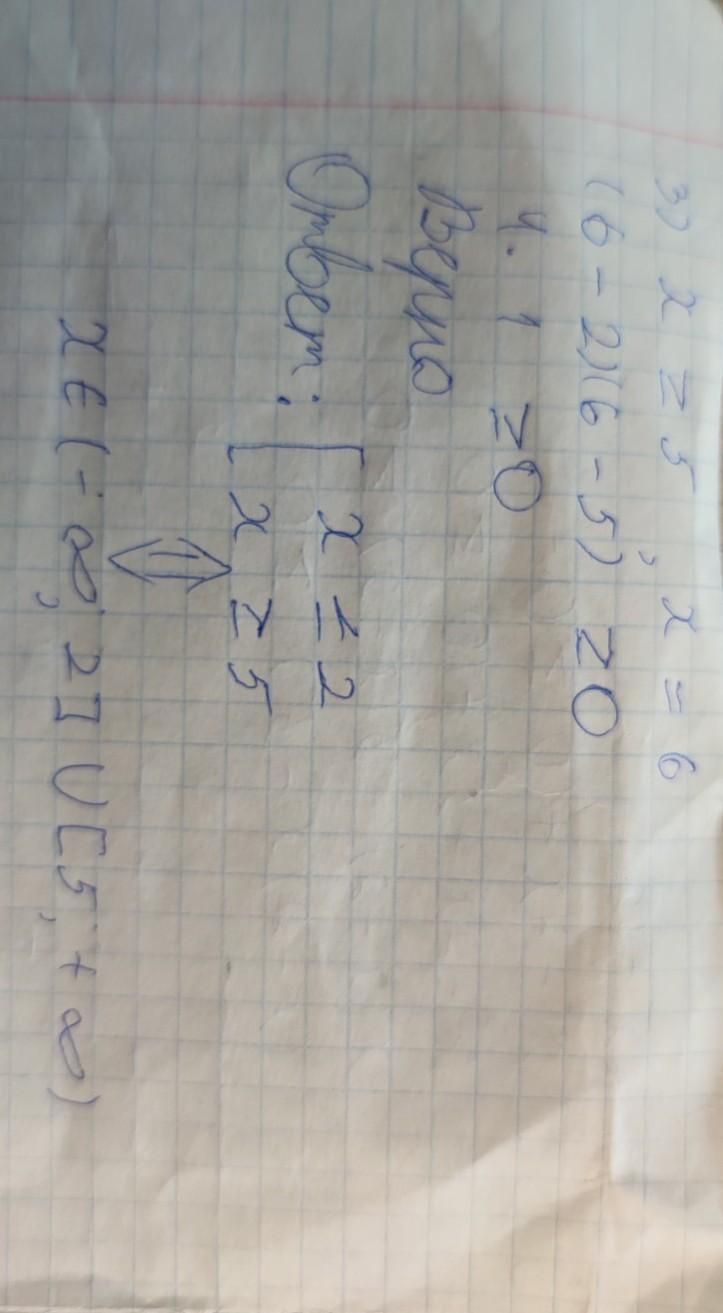 3) x ≥ 5 ; x = 6
(6 - 2)(6 - 5) ≥ 0
4. 1 ≥ 0
Верно
Ответ: [ x ≤ 2
[ x ≥ 5
⇕
x ∈ (-∞; 2] ∪ [5; +∞)